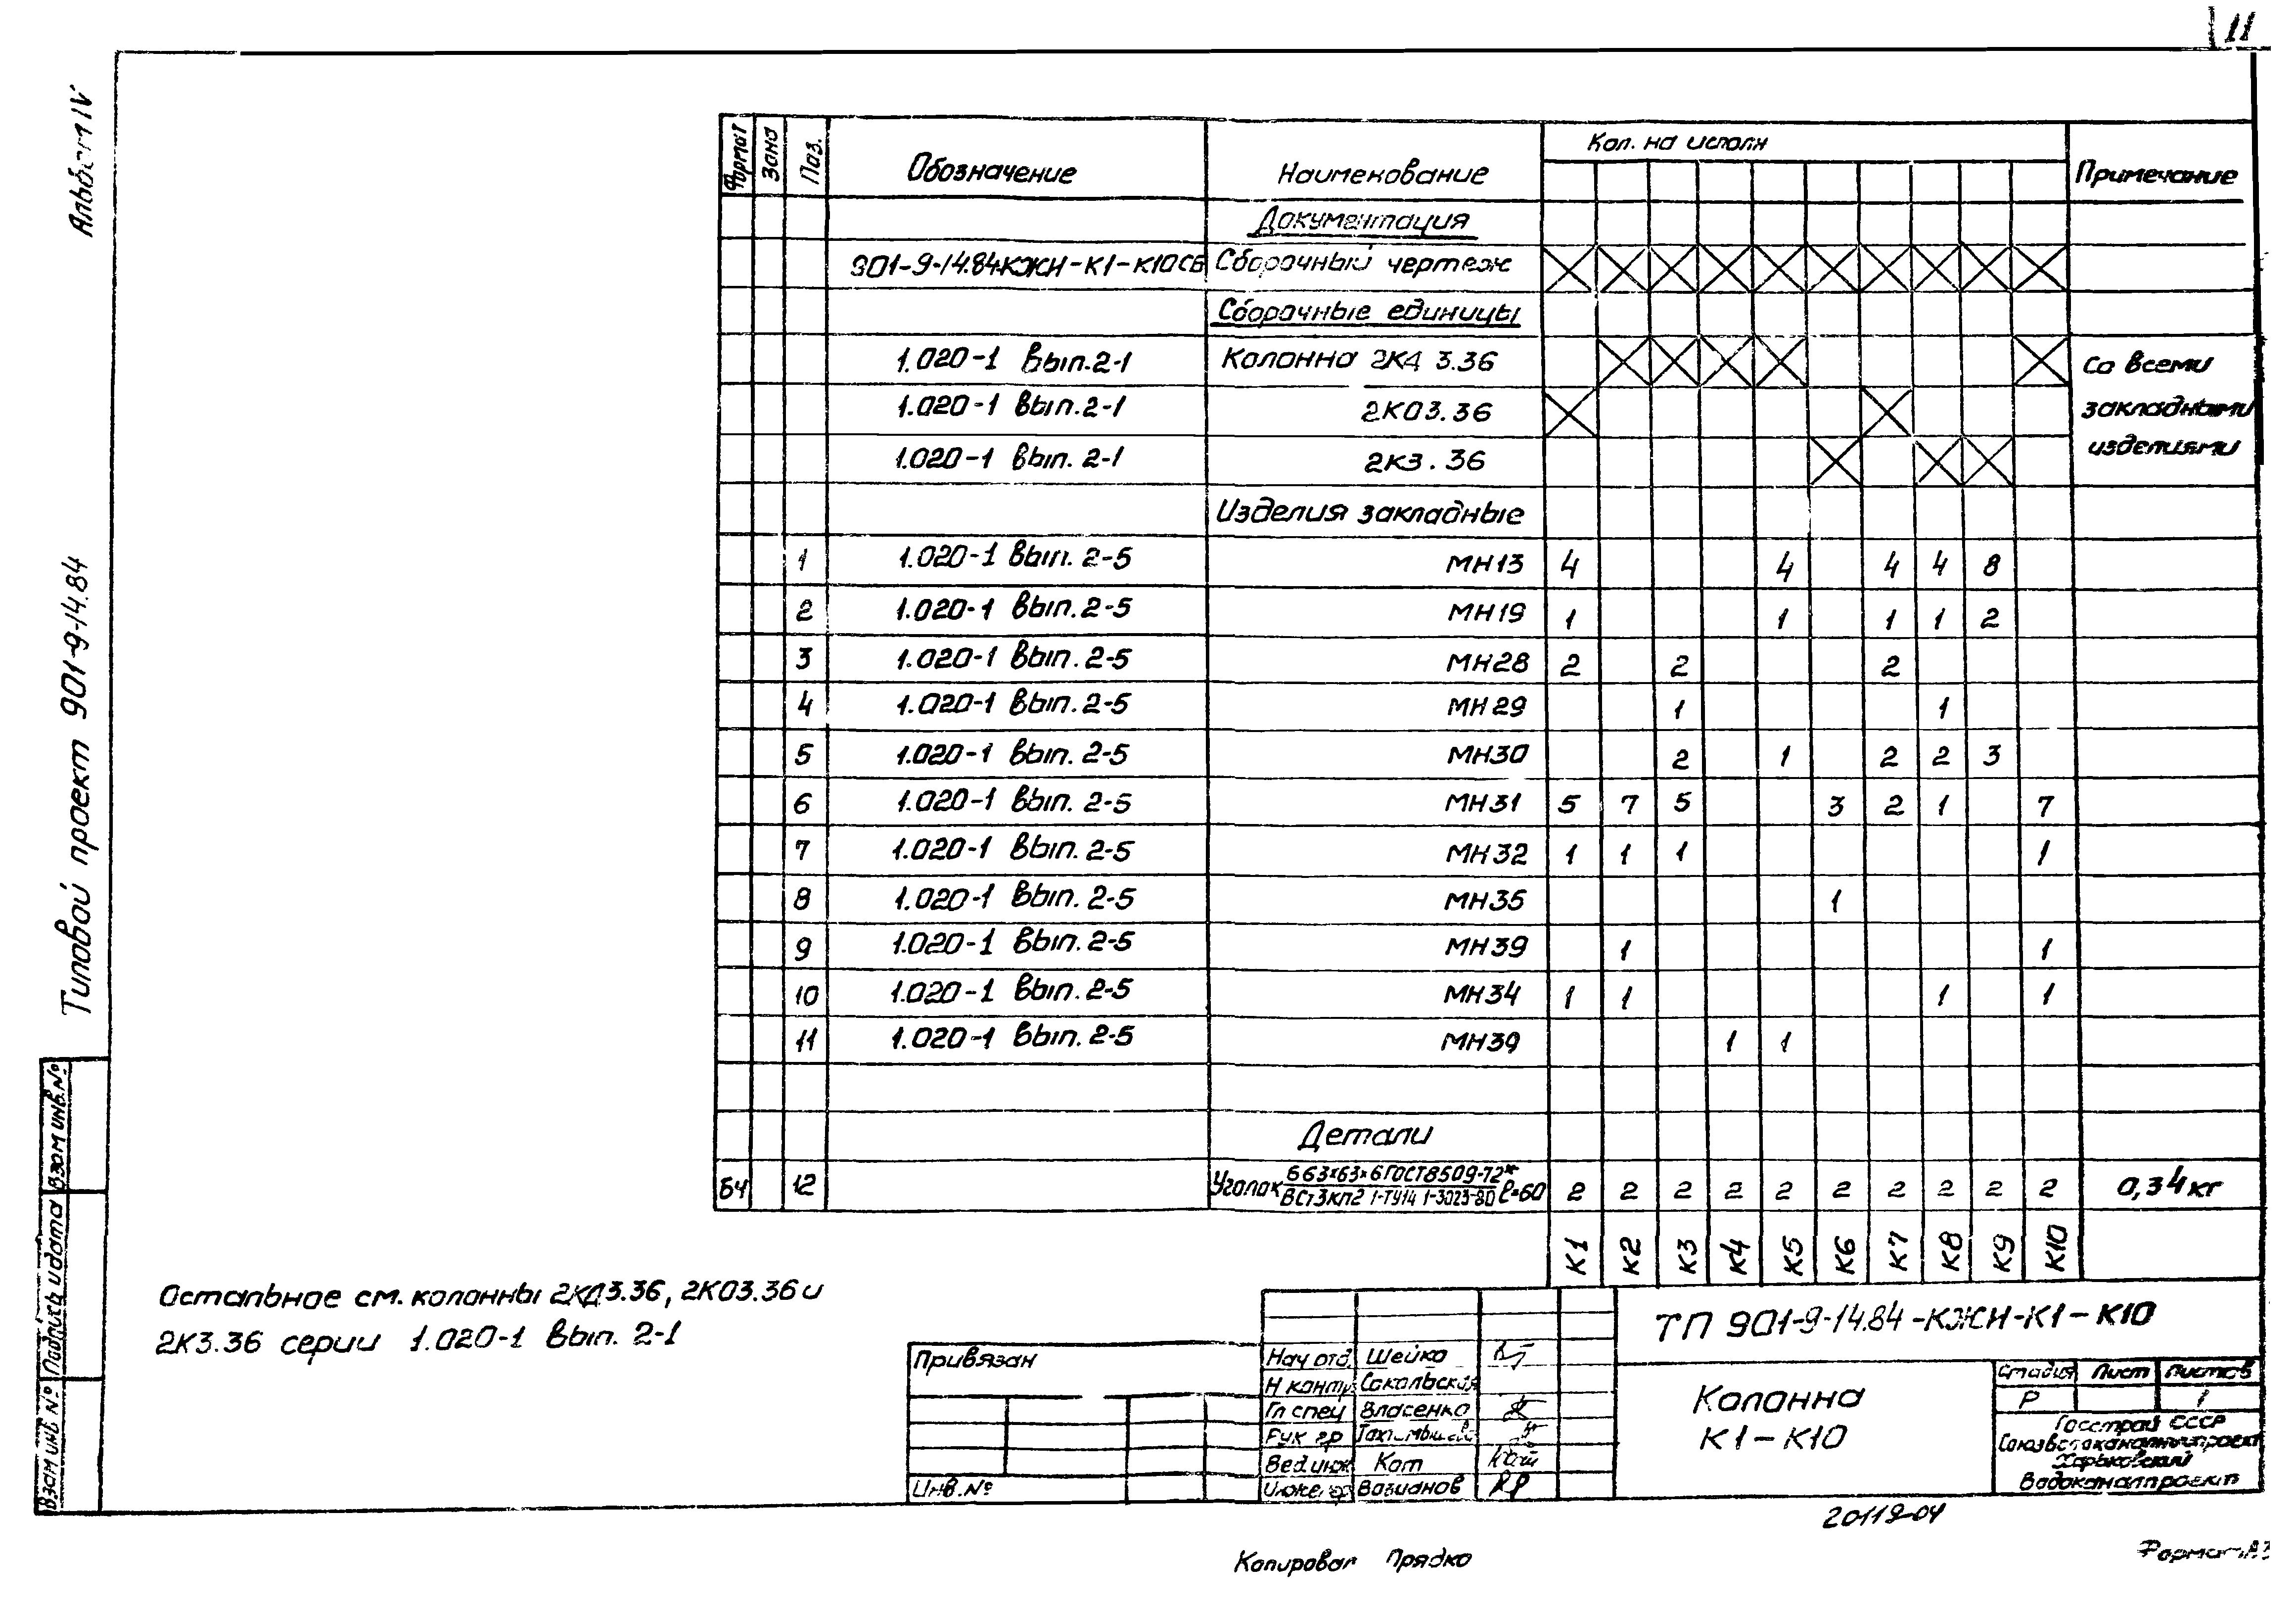 11
Альбом IV
Типовой проект 901-9-14.84
Формат Зона Поз. Обозначение Наименование Кол. на исполн Примечание
Документация
901-9-14.84КЖИ-К1-К10СБ Сборочный чертеж
Сборочные единицы
1.020-1 Вып.2-1 Колонна 2КД 3.36 Со всеми
1.020-1 Вып.2-1 2КО3.36 закладными
1.020-1 Вып. 2-1 2К3.36 изделиями
Изделия закладные
1 1.020-1 Вып. 2-5 МН13 4 4 4 4 8
2 1.020-1 Вып. 2-5 МН19 1 1 1 1 2
3 1.020-1 Вып. 2-5 МН28 2 2 2
4 1.020-1 Вып. 2-5 МН29 1 1
5 1.020-1 Вып. 2-5 МН30 2 1 2 2 3
6 1.020-1 Вып. 2-5 МН31 5 7 5 3 2 1 7
7 1.020-1 Вып. 2-5 МН32 1 1 1 1
8 1.020-1 Вып. 2-5 МН35 1
9 1.020-1 Вып. 2-5 МН39 1 1
10 1.020-1 Вып. 2-5 МН34 1 1 1 1
11 1.020-1 Вып. 2-5 МН39 1 1
Детали
БЧ 12 Уголок Б63×63×6ГОСТ8509-72* ℓ=60 2 2 2 2 2 2 2 2 2 2 0,34кг
ВСт3КП2 1-ТУ14 1-3023-80
К1 К2 К3 К4 К5 К6 К7 К8 К9 К10
Остальное см. колонны 2КД3.36, 2КО3.36 и
2К3.36 серии 1.020-1 Вып. 2-1
Взам инв.№
Подпись и дата
Взам инв №
Привязан
Инв.№
Нач отд Шейко
Н контр Сокольская
Гл спец Власенко
Рук гр
Вед инж Кот
Инжен Вазианов
ТП 901-9-14.84-КЖИ-К1-К10
Колонна
К1-К10
Стадия Лист Листов
Р 1
Госстрой СССР
Союзводоканалниипроект
Харьковский
Водоканалпроект
20119-04
Копировал Прядко
Формат А3